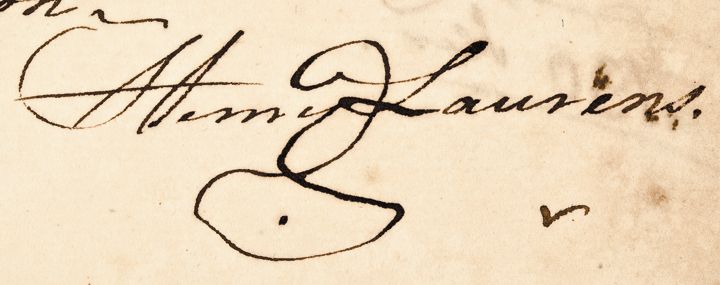 Henry Laurens.